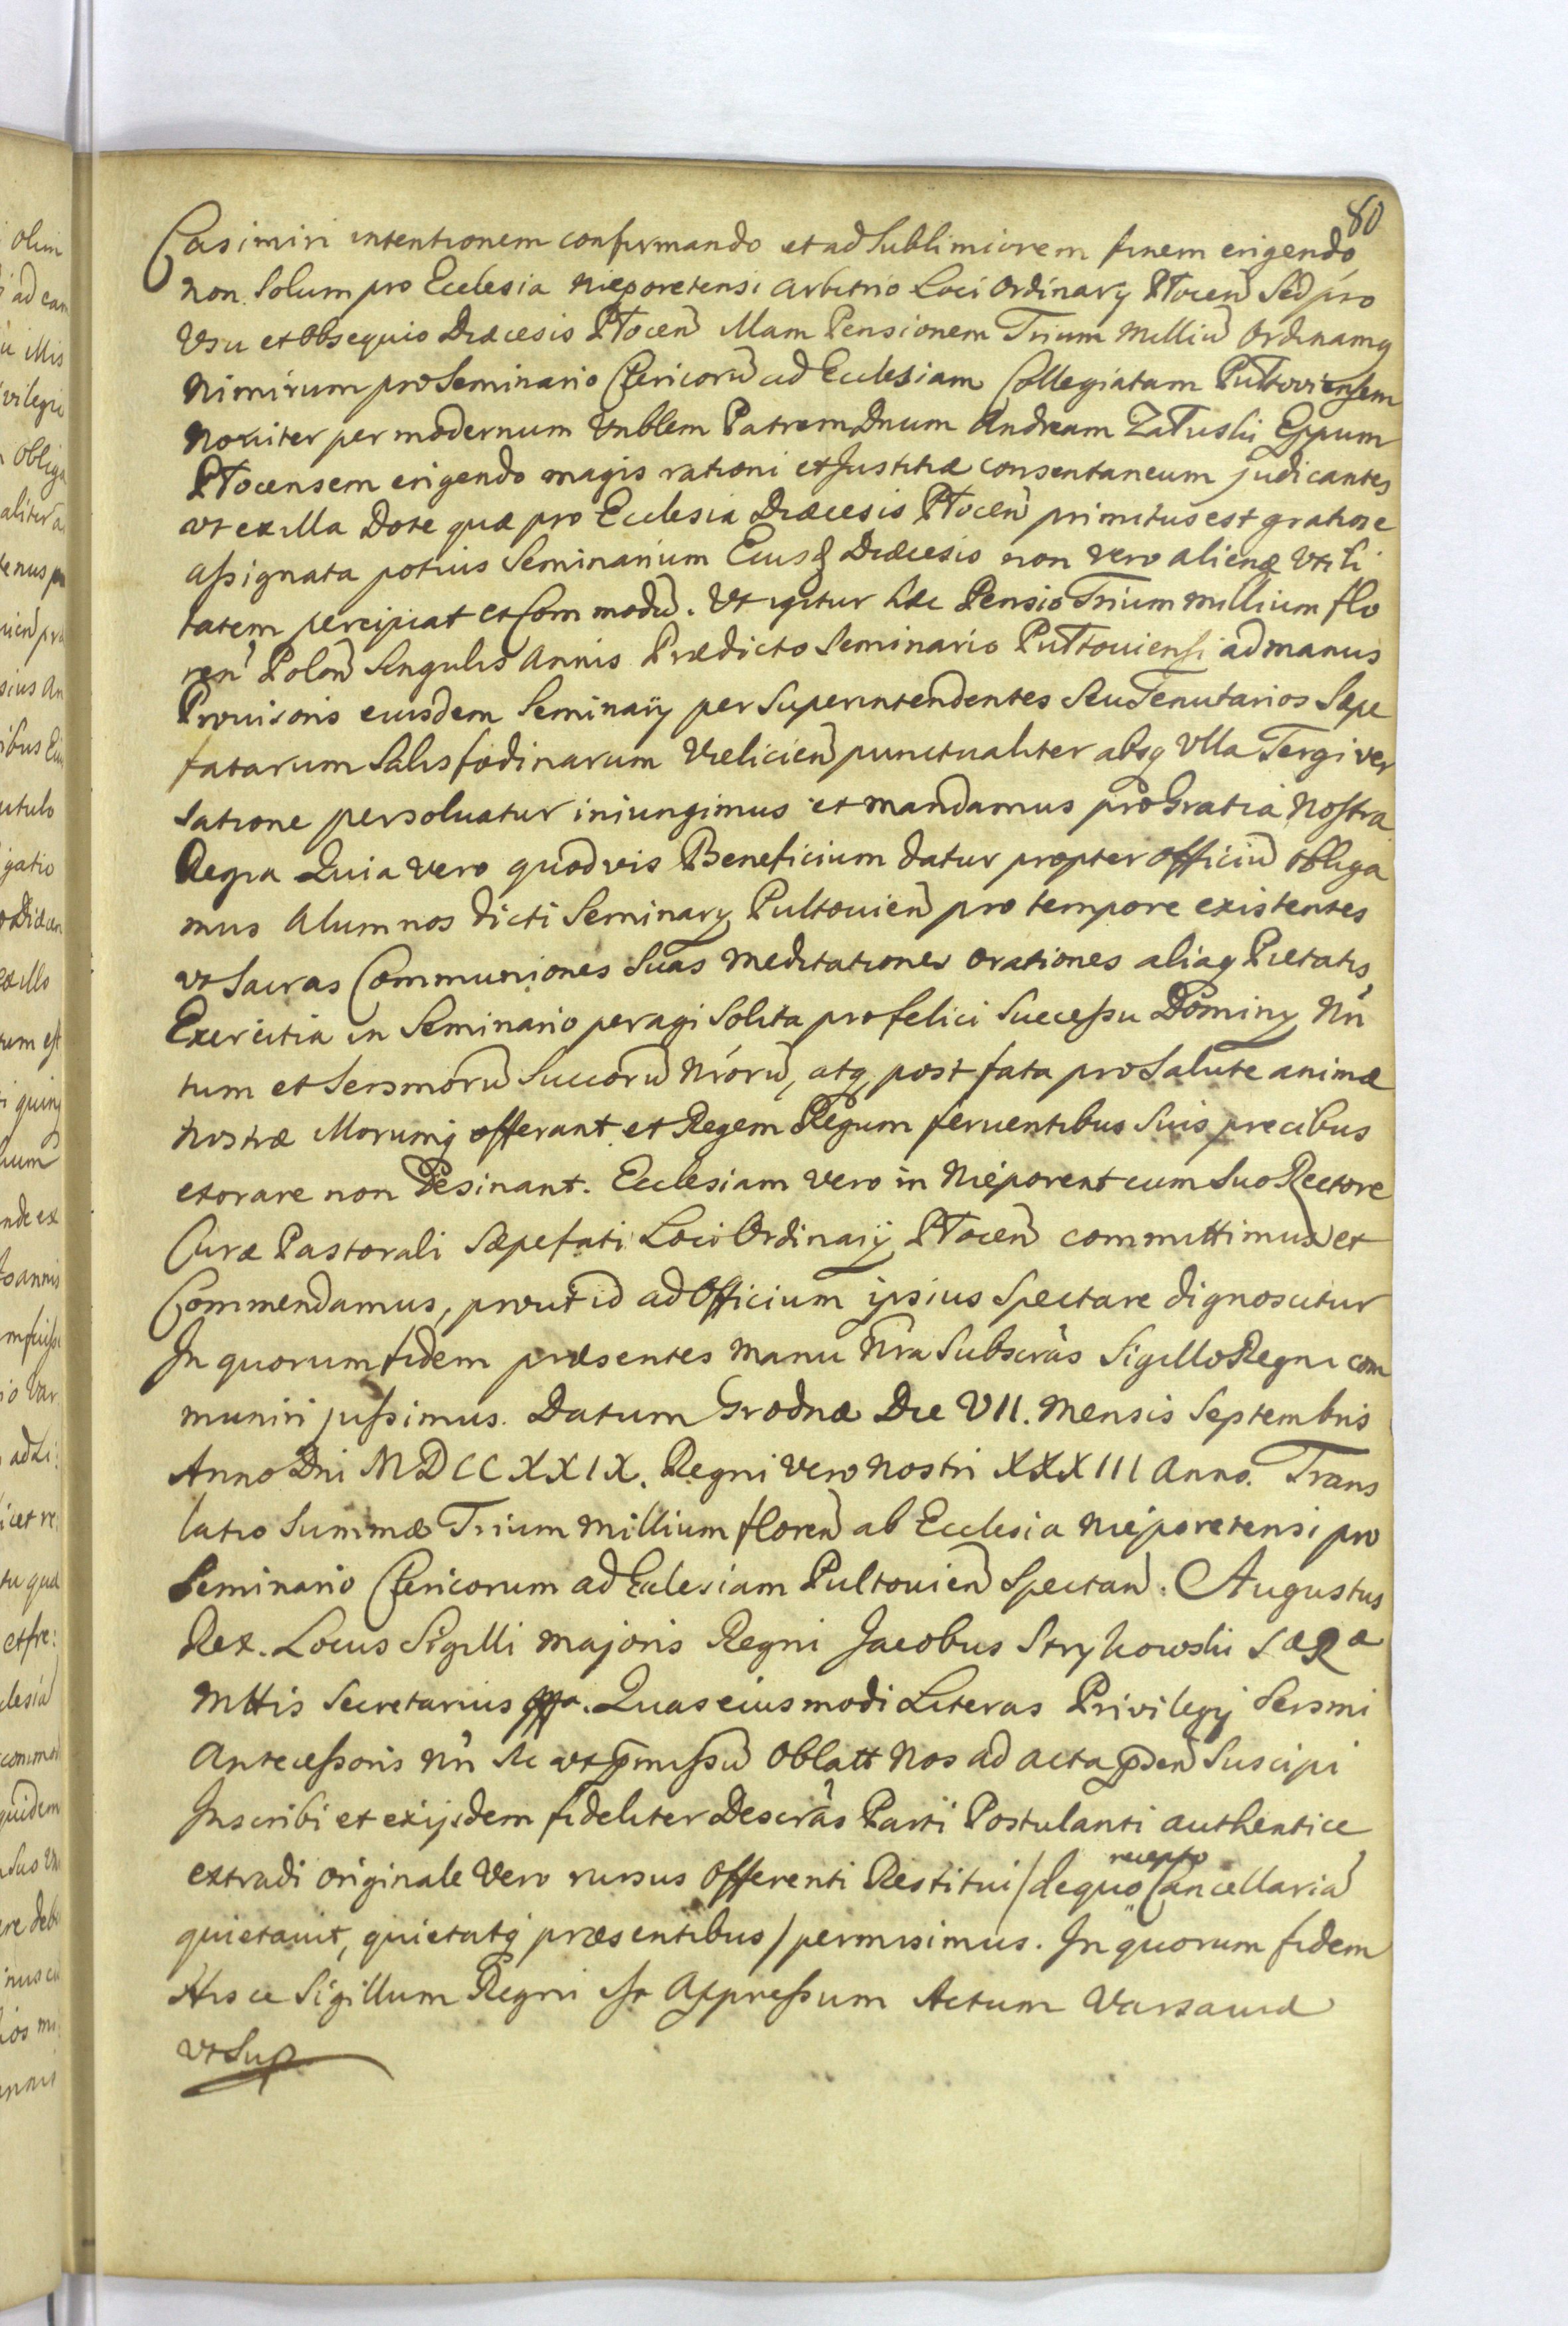 80
Casimiri intentionem confirmando et ad sublimiorem finem erigendo
non solum pro Ecclesia Nieporetensi arbitrio Loci Ordinarÿ Płocen̄ Sed pro
Usu et Obsequio Diæcesis Płocen̄ illam Pensionem Trium Milliū Ordinamq
Nimirum pro Seminario Clericorū ad Ecclesiam Collegiatam Pułtoviensem
Noviter per modernum Vnblem Patrem Dnum Andream Załuski Eppum
Płocensem erigendo magis rationi et Justitiæ consentaneum judicantes
ut ex illa Dote quæ pro Ecclesia Diæcesis Płocen̄ primitus est gratiose
assignata potius Seminarium Eiusd Diæcesis non vero alienæ Utili
tatem percipiat et Commodū. Ut igitur hæc Pensio Trium millium flo
ren̄ Polon̄ Singulis Annis Prædicto Seminario Pułtouiensi ad manus
Prouisoris eiusdem Seminarÿ per Superintendentes Seu Tenutarios Sæpe
fatarum Salisfodinarum Vielicien̄ punctualiter absq Ulla Tergiver
satione persoluatur iniungimus et mandamus pro Gratia Nostra
Regia Quia vero quodvis Beneficium datur propter officiū obliga
mus Alumnos dicti Seminarÿ Pultouien̄ pro tempore existentes
ut Sacras Communiones Suas Meditationes Orationes aliaq Pietatis
Exercitia in Seminario peragi Solita pro felici Successu Dominÿ Nri
tum et Sersmorū Succorū Nrorū, atq post fata pro Salute animæ
Nostræ illorumq offerant et Regem Regum feruentibus Suis precibus
exorare non Desinant. Ecclesiam vero in Nieporent cum Suo Rectore
Curæ Pastorali Sæpefati Loci Ordinarÿ Płocen̄ committimus et
Commendamus, prout id ad Officium ipsius Spectare dignoscitur
In quorum fidem præsentes Manu Nra Subscras Sigillo Regni com
muniri jussimus. Datum Grodnæ Die VII. Mensis Septembris
Anno Dni MDCCXXIX. Regni vero Nostri XXXIII Anno. Trans
latio Summæ Trium Millium floren̄ ab Ecclesia Nieporetensi pro
Seminario Clericorum ad Ecclesiam Pultouien̄ Spectan̄. Augustus
Rex. Locus Sigilli Majoris Regni Jacobus Strykowski SæRæ
Mttis Secretarius. Quas eiusmodi Literas Privilegÿ Sersmi
Antecessoris Nri Ac ut p̄missū Oblatt Nos ad acta p̄sen̄ Suscipi
Inscribi et ex ijsdem fideliter Descras Parti Postulanti authentice
extradi Originale Vero rursus Offerenti Restitui / de quo recepto Cancellariā
quietauit, quietatq præsentibus / permisimus. In quorum fidem
Hisce Sigillum Regni est Appressum Actum Varsauiæ
Ut Sup.